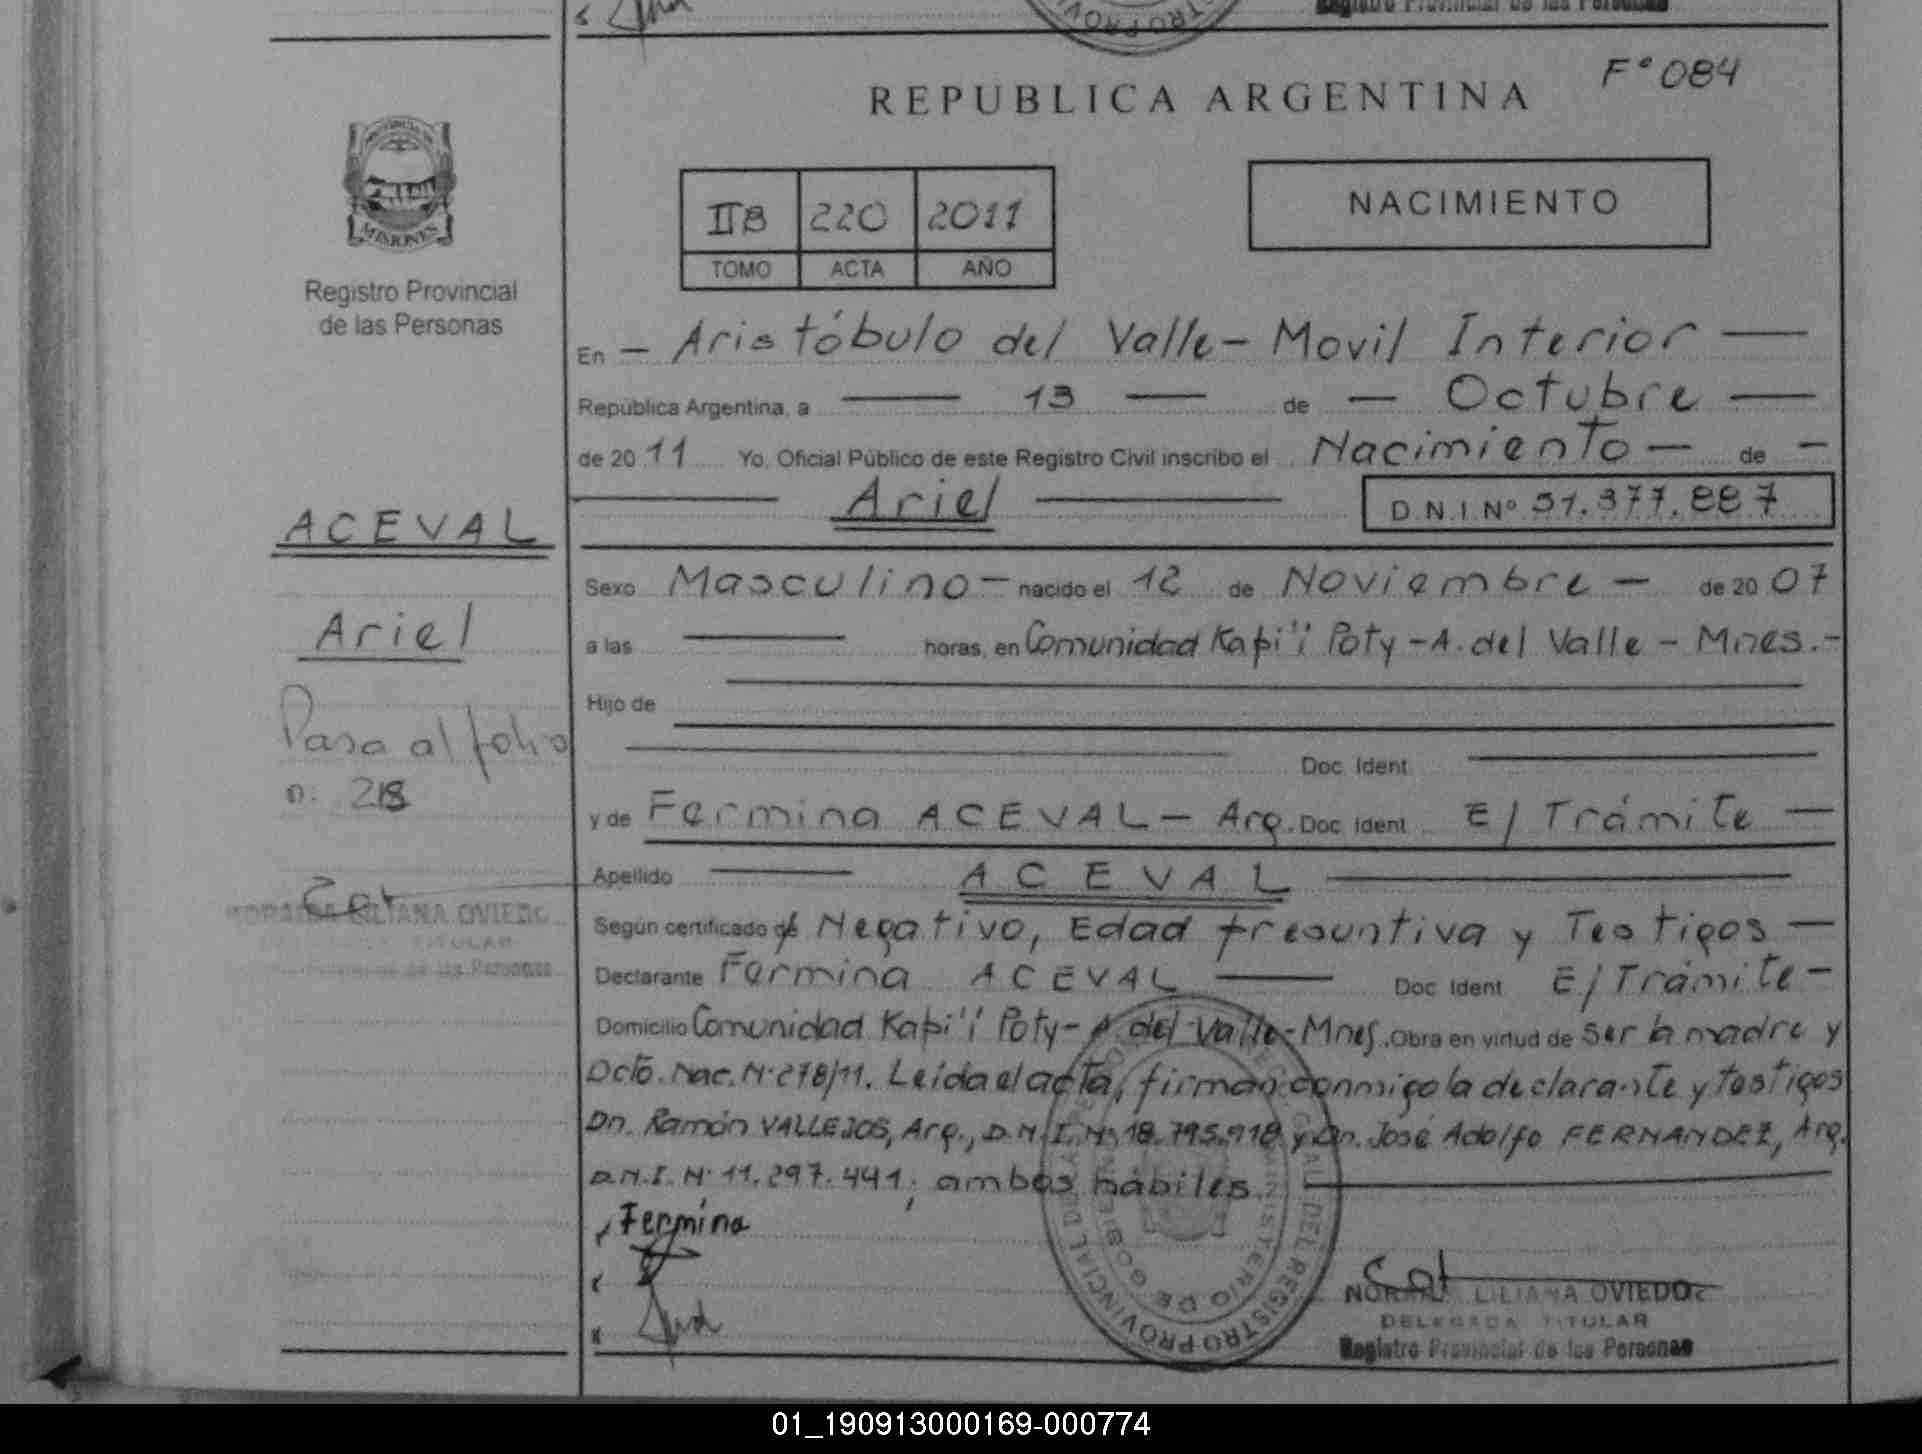 Registro Provincial de las Personas
F° 084
REPUBLICA ARGENTINA
NACIMIENTO
IIB 220 2011
TOMO ACTA AÑO
MISIONES
Registro Provincial
de las Personas
En — Aristóbulo del Valle - Movil Interior —
República Argentina, a — 13 — de — Octubre —
de 20 11 Yo, Oficial Público de este Registro Civil inscribo el Nacimiento — de —
— Ariel —
D.N.I. Nº 51.377.887
ACEVAL
Ariel
Pasa al folio
n. 218
Sexo Masculino — nacido el 12 de Noviembre — de 20 07
a las — horas, en Comunidad Kapi'i Poty - A. del Valle - Mnes. -
Hijo de
Doc. Ident.
y de Fermina ACEVAL — Arg. Doc. Ident. E/ Trámite —
Apellido — ACEVAL —
Según certificado de Negativo, Edad presuntiva y Testigos —
Declarante Fermina ACEVAL — Doc. Ident. E/ Trámite -
Domicilio Comunidad Kapi'i Poty - A. del Valle - Mnes. Obra en virtud de ser la madre y
Dcto. Nac. N° 278/11. Leida el acta, firman conmigo la declarante y testigos
Dn. Ramón VALLEJOS, Arg., D.N.I. N° 18.795.918 y Dn. José Adolfo FERNANDEZ, Arg.
D.N.I. N° 11.297.441; ambos hábiles.
Fermina
LILIANA OVIEDO
TITULAR
de las Personas
LILIANA OVIEDO
DELEGADA TITULAR
Registro Provincial de las Personas
REGISTRO PROVINCIAL DE LAS PERSONAS
MINISTERIO DE GOBIERNO
01_190913000169-000774